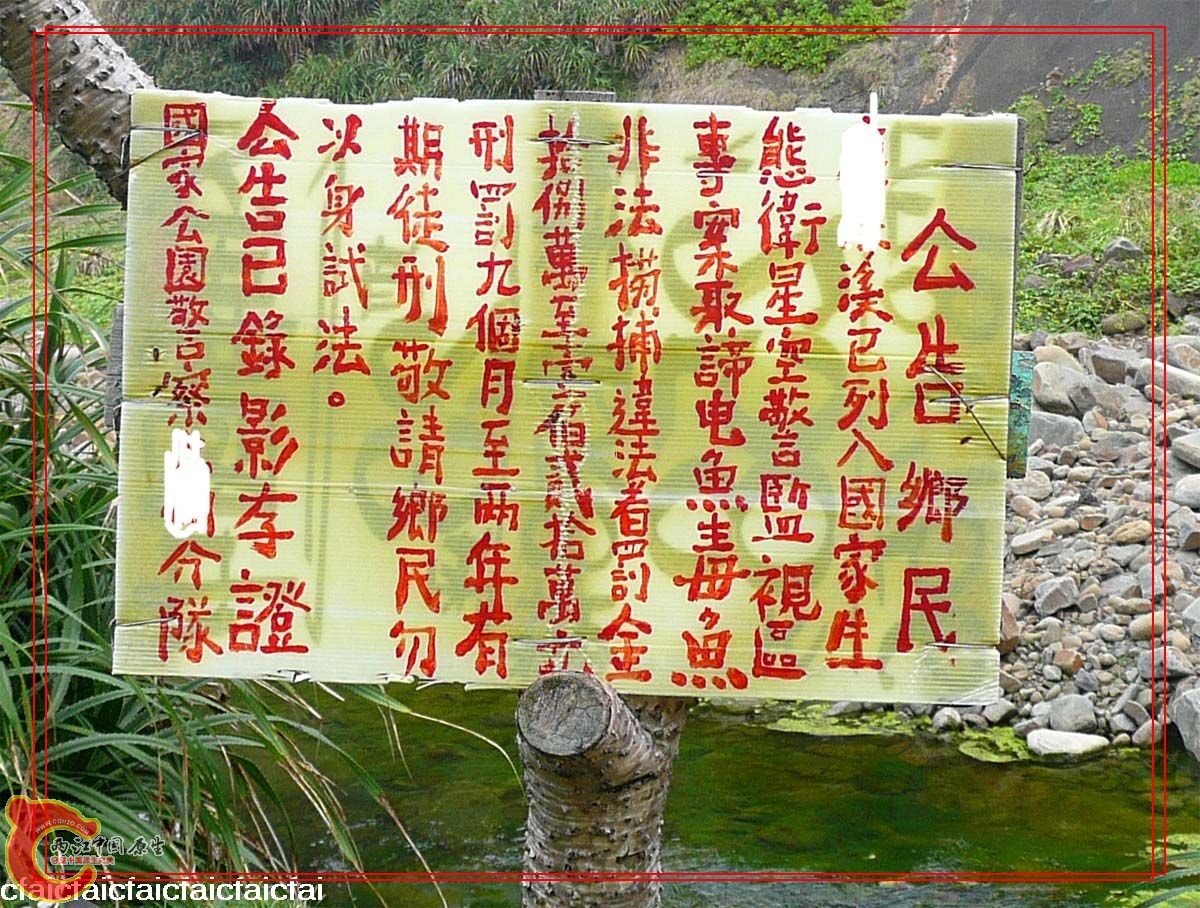 公告鄉民
溪已列入國家生
熊衛星空警監視區
專案取諦电魚生毋魚
非法撈捕違法者罰金
捌萬至壹佰貳拾萬元
刑罰九個月至兩年有
期徒刑敬請鄉民勿
以身試法。
公告已錄影存證
國家公園警察
分隊
WWW.CQHJD.COM
两江中国原生
cfaicfaicfaicfaicfaicfai